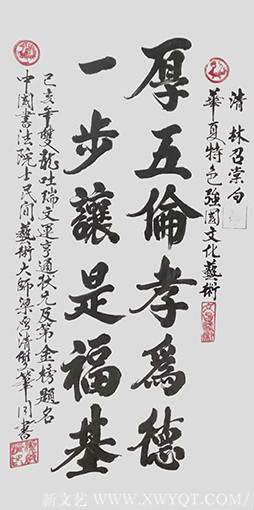 清 林召棠句
華夏特色強国文化藝術
厚五倫孝爲德
一步讓是福基
己亥年雙龍吐瑞文運亨通狀元及第金榜題名
中國書法院士民間藝術大師梁
清
筆同書
新文艺 WWW.XWYQT.COM